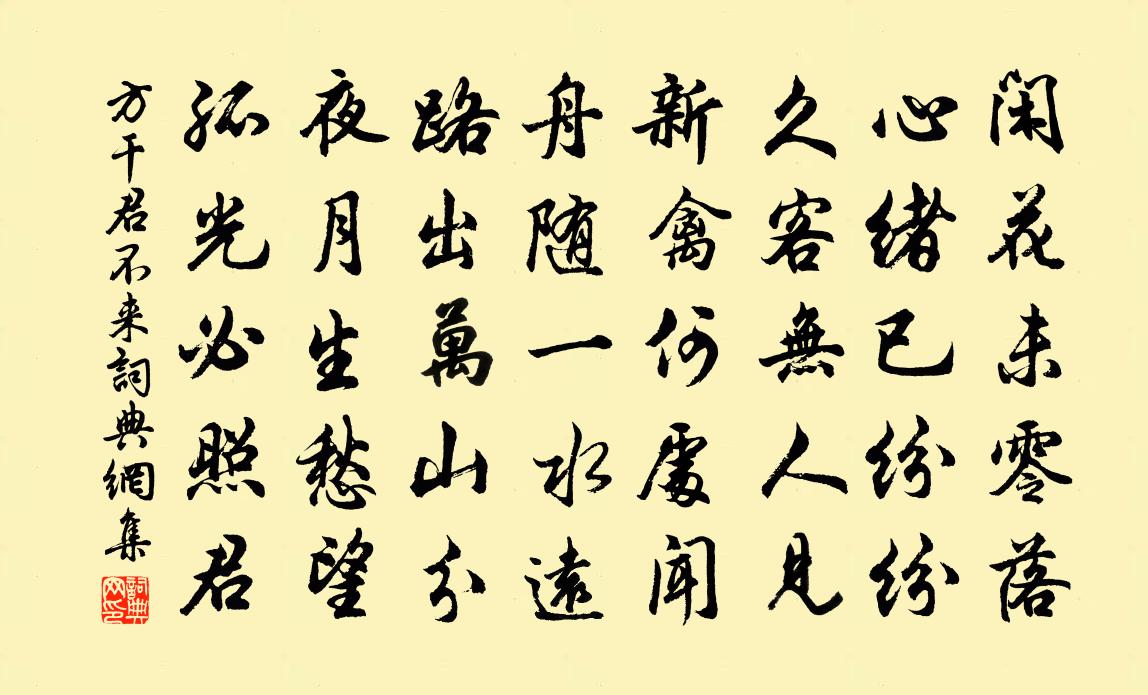 閑花未零落
心緒已紛紛
久客無人見
新禽何處聞
舟隨一水遠
路出萬山分
夜月生愁望
孤光必照君
方干君不来詞典網集
詞典網印